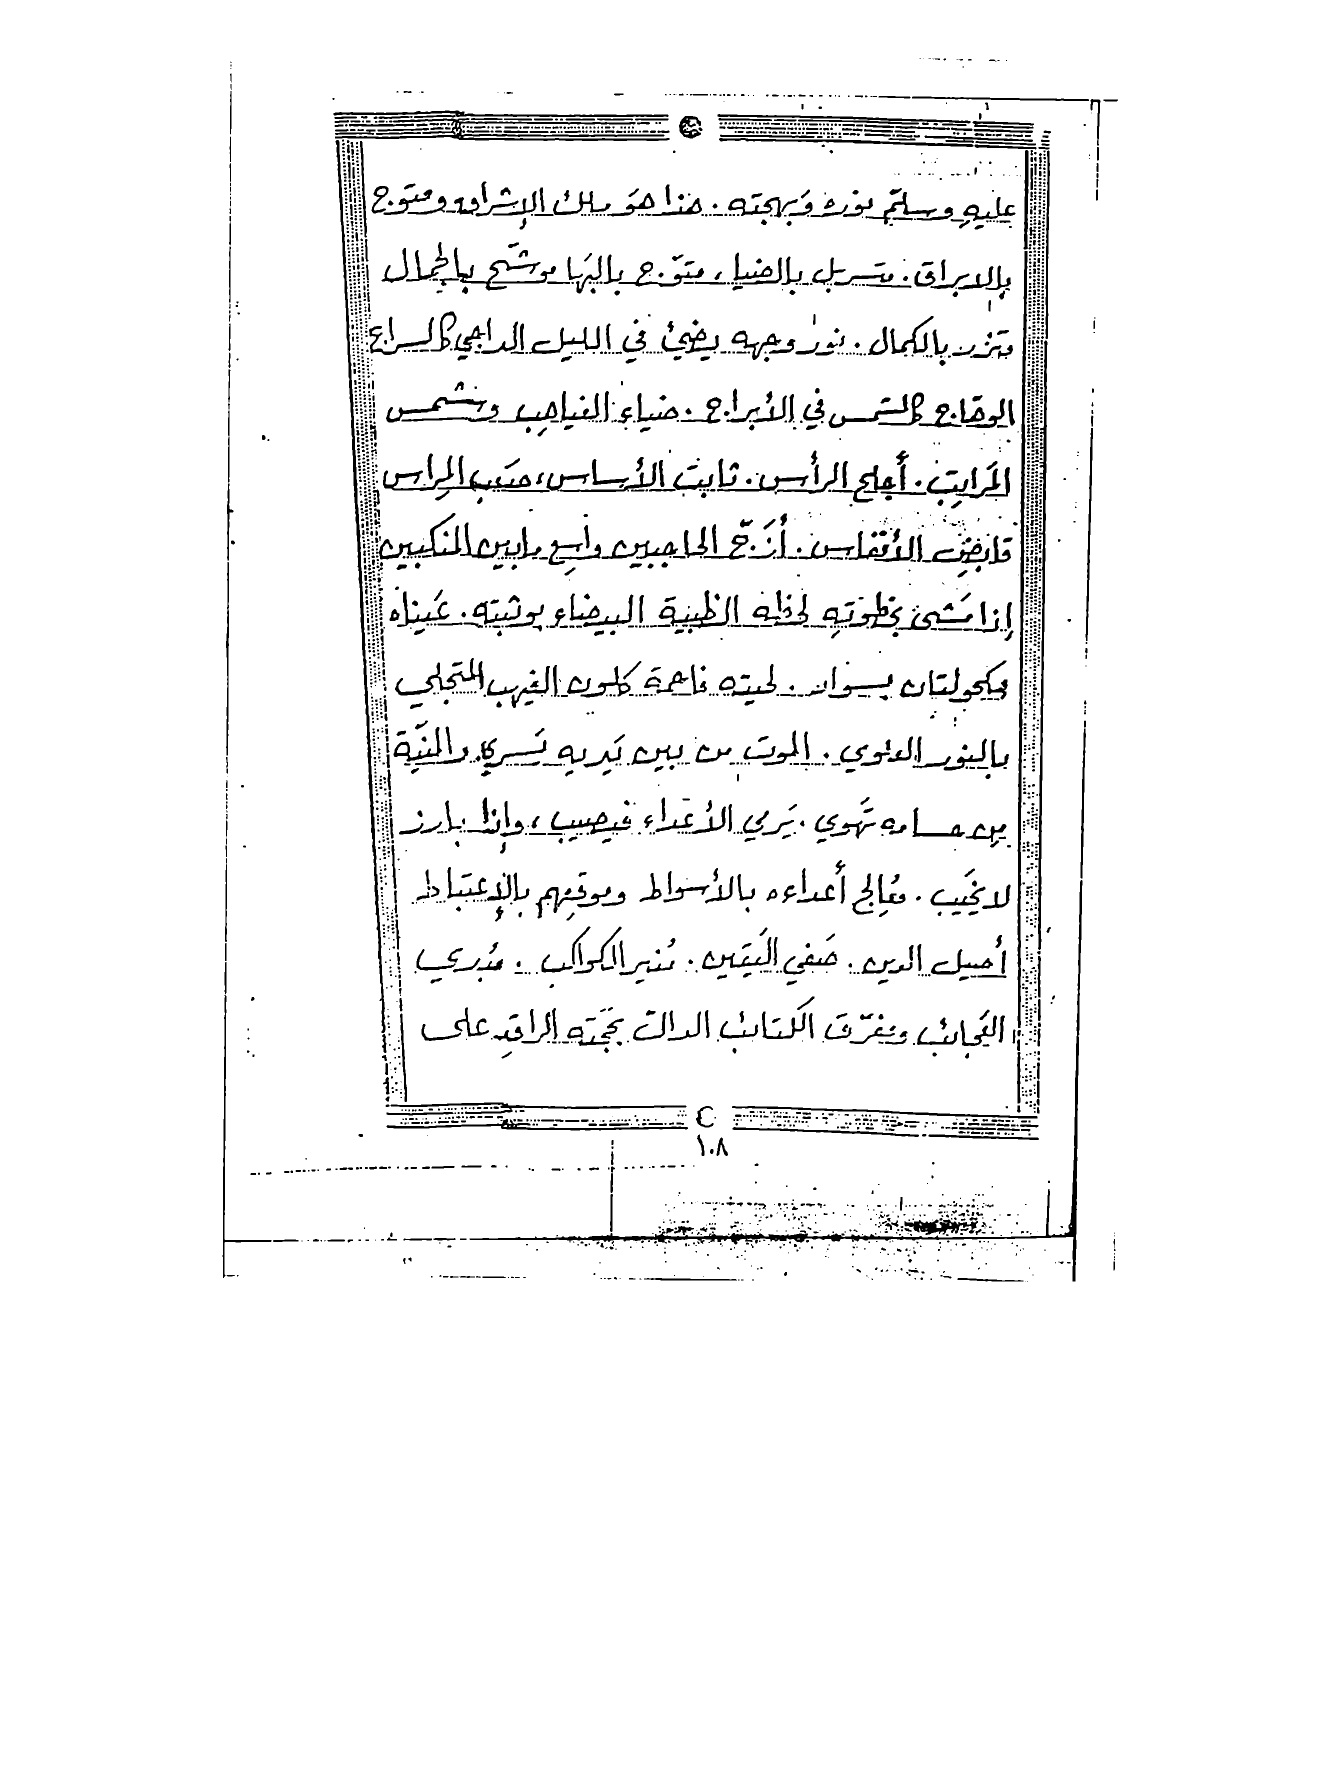 عليهِ وسلّم نوره وَبهجته. هذا هوَ ملك الإشراق ومتوج
بالابراق. متسربل بالضياء متوّج بالبَها موشّح بالجمال
متزر بالكمال. نور وجهه يضيئ في الليل الداجي كالسراج
الوهّاج كالشمس في الأبراج. ضياء الغياهِب وشمس
المَراتِب. أجلح الرأس. ثابت الأساس، صَعب المِراس
قابضِ الأنفاس. أزَجّ الحاجبين واسِع مابين المنكبين
إذا مَشى بخطوَتِهِ لحظه الظبية البيضاء بوثبته. عَيناه
مكحولتان بسواد. لحيته فاحمة كلون الغيهب المتجلي
بالنور العلوي. الموت من بين يَديه يَسري والمنيّة
مِن حسامه تَهوي. يَرمي الأعداء فيصيب، وإذا بارز
لا يخَيب. مُعالج أعداءه بالأسواط وموقِعهم بالإعتباط
أصيل الدين. صَفي اليَقين. مُنير الكواكب. مُبدي
العَجائب ومفرّق الكتائب الدالّ بحجّته الراقِد على
١٠٨